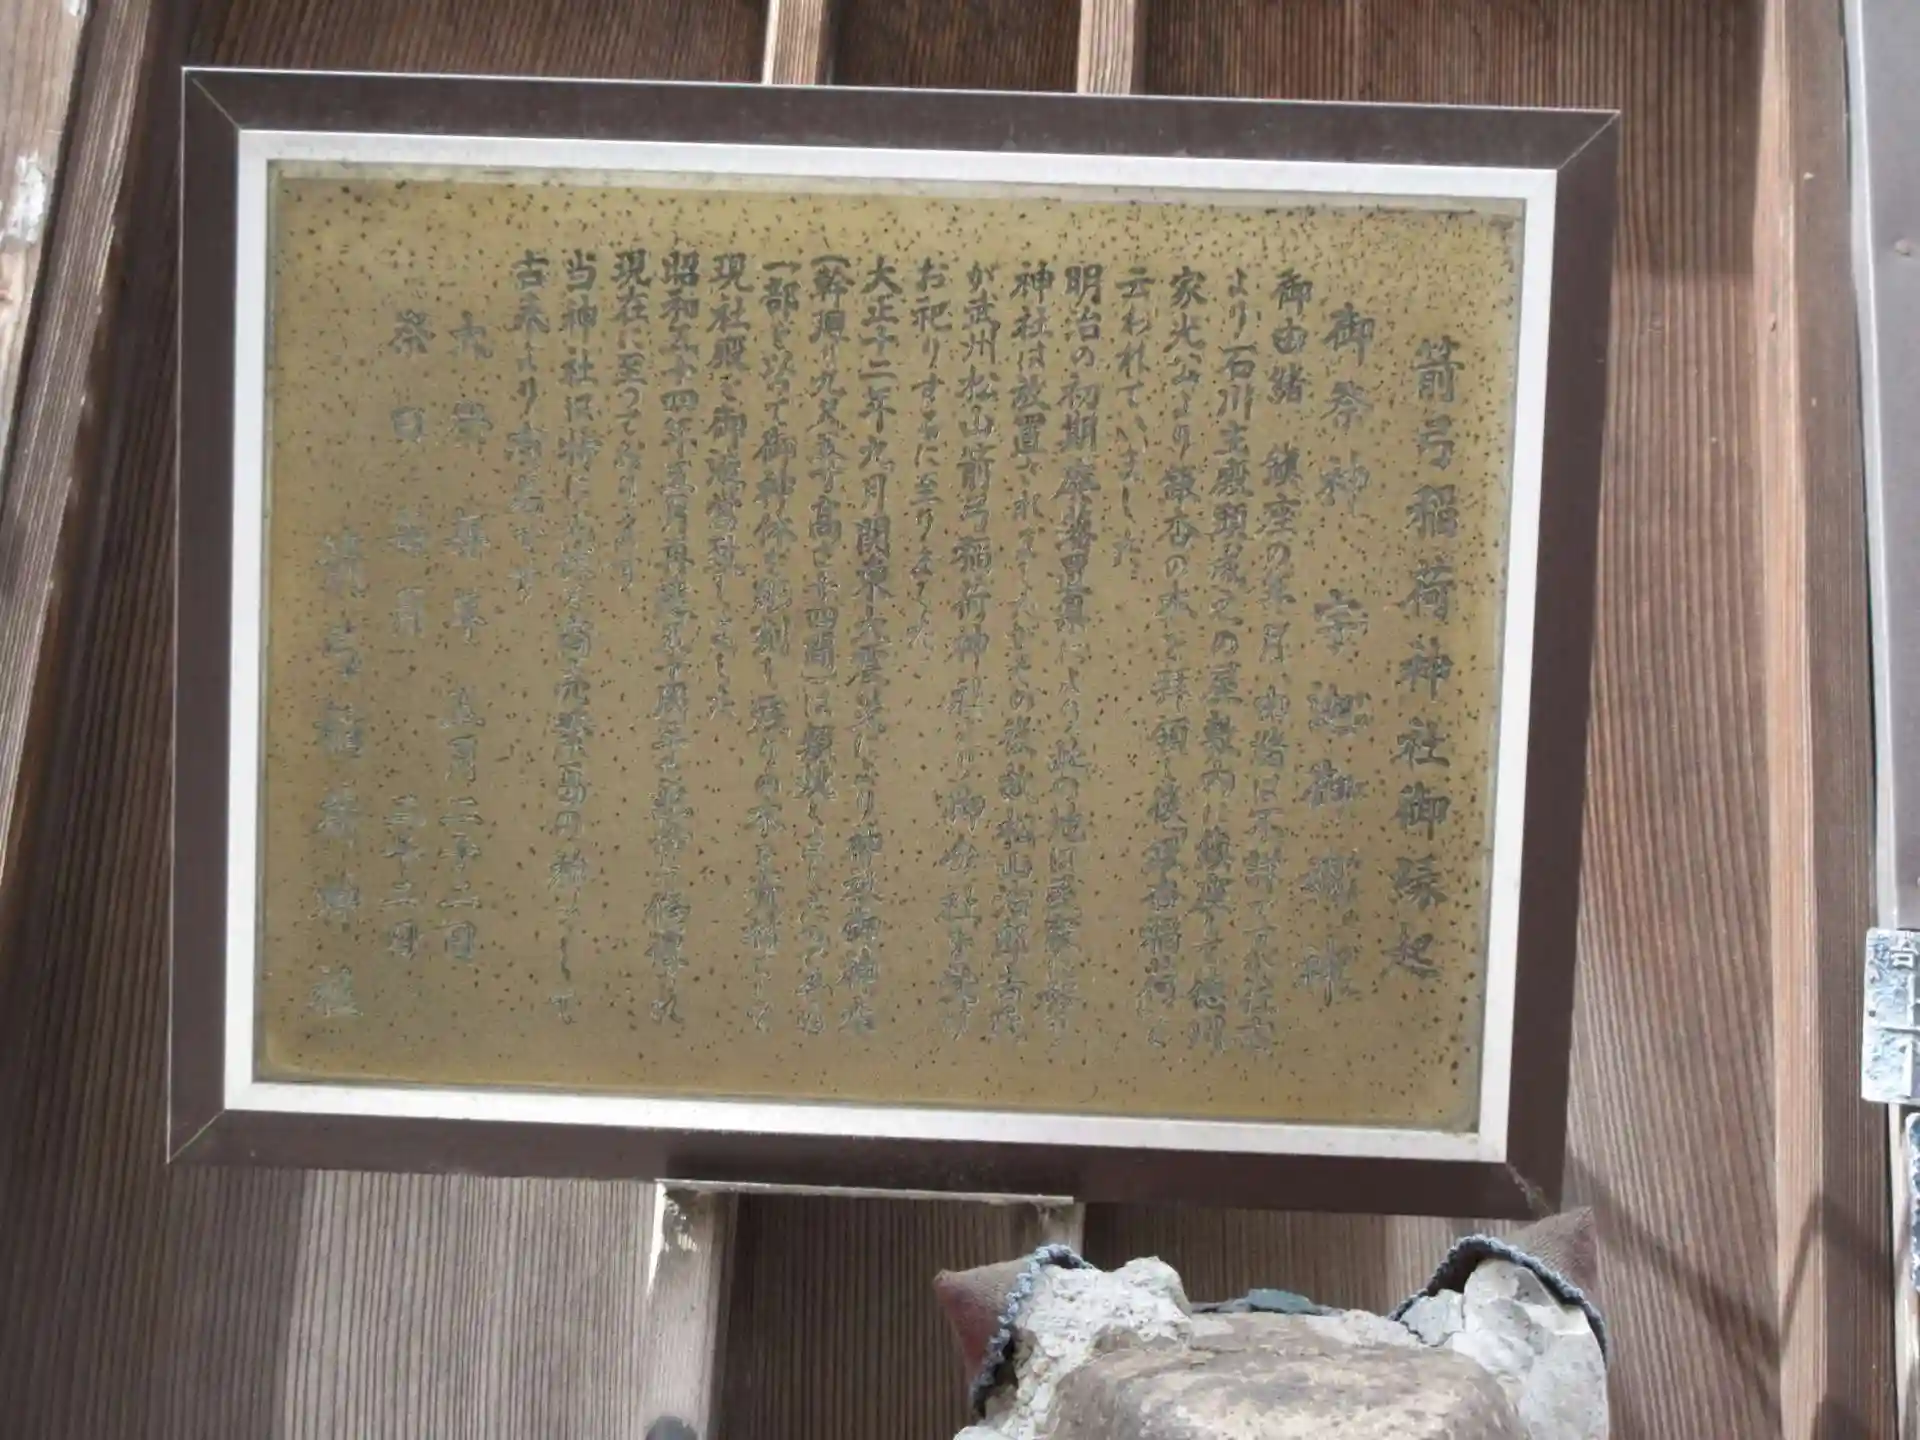 箭弓稲荷神社御縁起
御祭神 宇迦御魂神
御由緒 鎮座の年月、由緒は不詳で
より石川主殿頭 の屋敷内に鎮座して徳川
家光公より銀杏の木を拝領し後「銀杏稲荷」と
云われていました。
明治の初期廃藩置県により此の地は
神社は放置されましたがその後 松山
が武州松山箭弓稲荷神社より御分社を受け
お祀りするに至りました
大正十二年九月関東大震災により神社御神木
(幹廻り九尺五寸高さ十四間)は焼失しましたので
一部を以って御神体を彫刻し残りの木を資材として
現社殿を御造営致しました
昭和五十四年五月再建五十周年を
現在に至っております
当神社は特に 商売繁昌 として
古来より有名です
大祭 毎年 五月二十二日
祭日 毎月 二十二日
箭弓稲荷神社